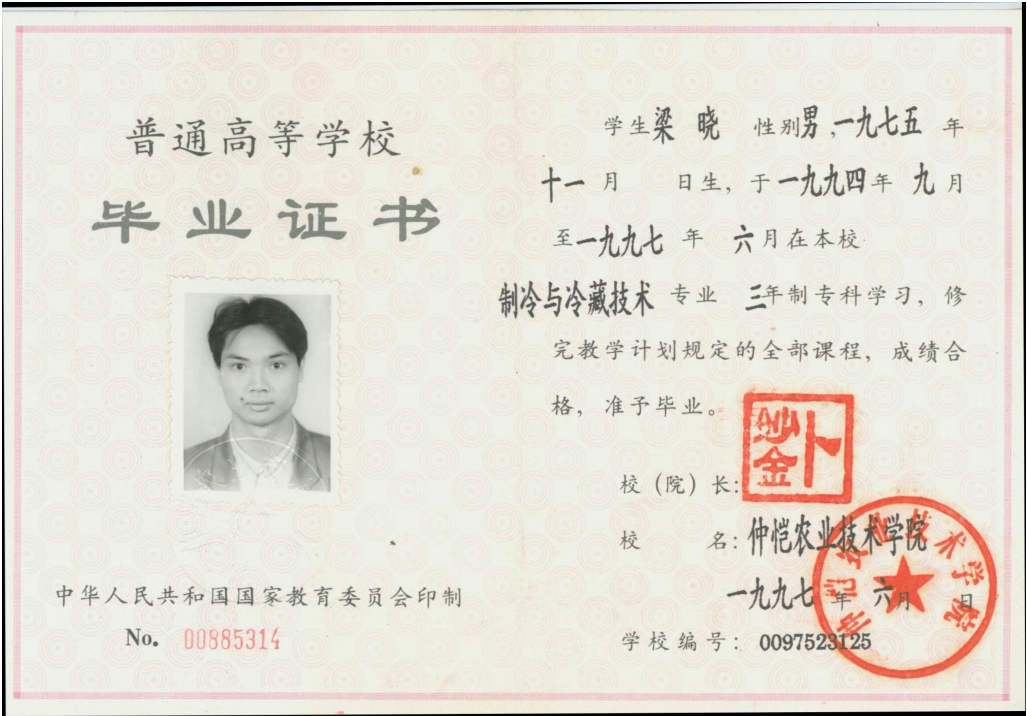 普通高等学校
毕业证书
中华人民共和国国家教育委员会印制
No. 00885314
学生梁 晓 性别男,一九七五 年
十一 月 日生, 于一九九四年 九 月
至一九九七 年 六月在本校
制冷与冷藏技术 专业 三年制专科学习, 修
完教学计划规定的全部课程, 成绩合
格, 准予毕业。
校 (院) 长:
校 名: 仲恺农业技术学院
一九九七 年 六月 日
学校编号: 0097523125
仲恺农业技术学院